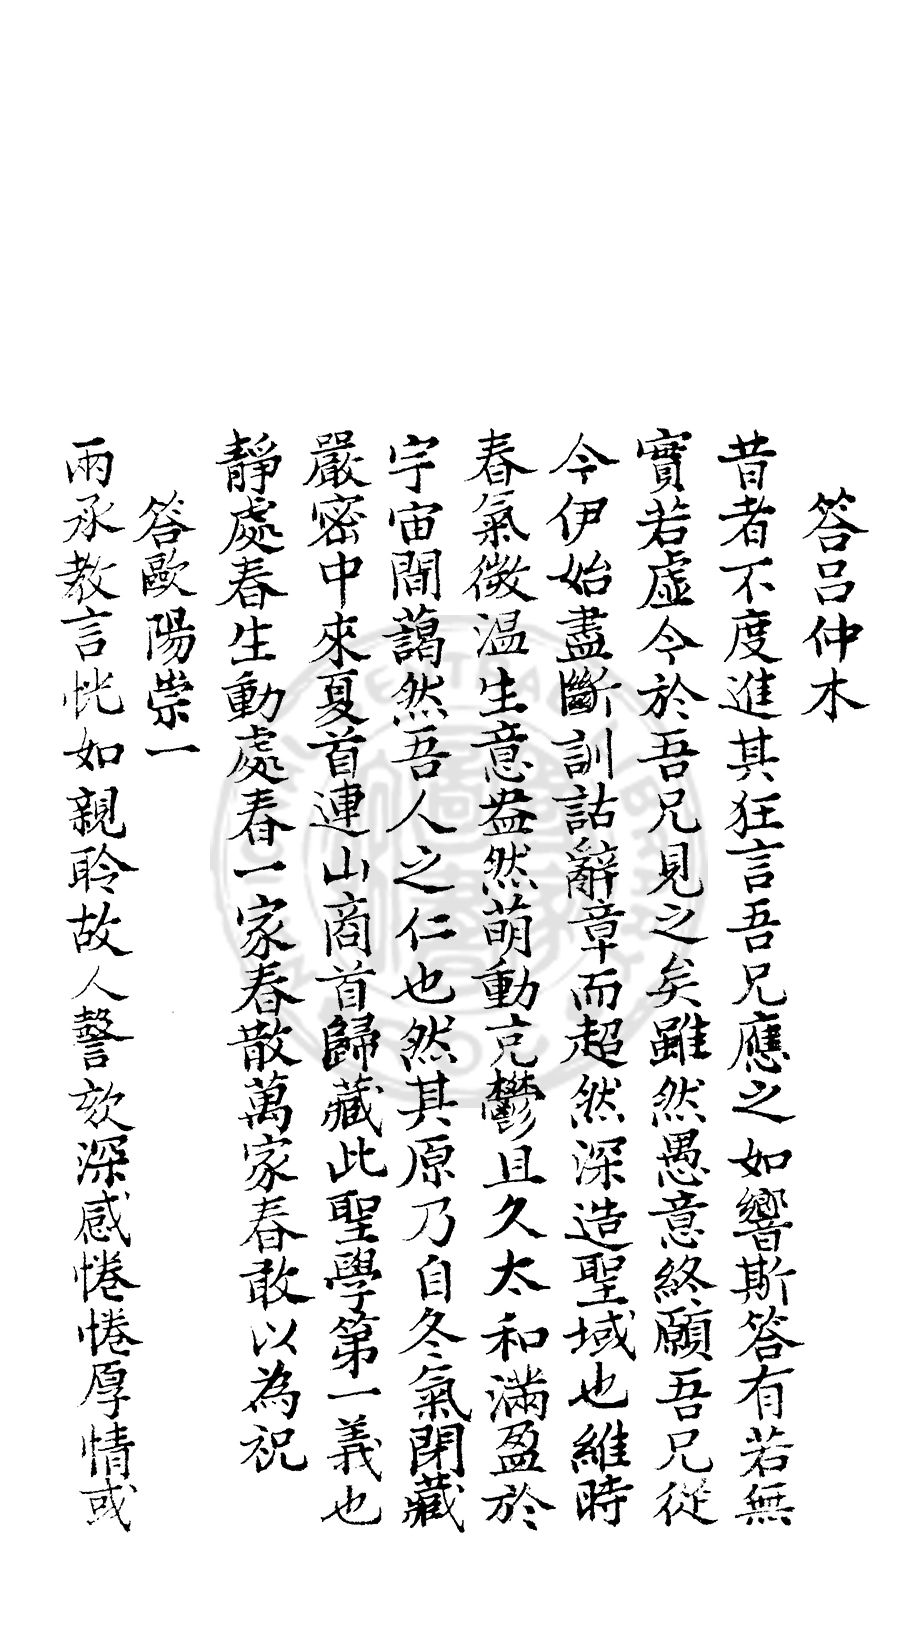 答呂仲木
昔者不度進其狂言吾兄應之如響斯答有若無
實若虛今於吾兄見之矣雖然愚意終願吾兄從
今伊始盡斷訓詁辭章而超然深造聖域也維時
春氣微温生意盎然萌動克鬱且久太和滿盈於
宇宙間藹然吾人之仁也然其原乃自冬氣閉藏
嚴密中來夏首連山商首歸藏此聖學第一義也
靜處春生動處春一家春散萬家春敢以為祝
答歐陽崇一
兩承教言恍如親聆故人謦欬深感惓惓厚情或